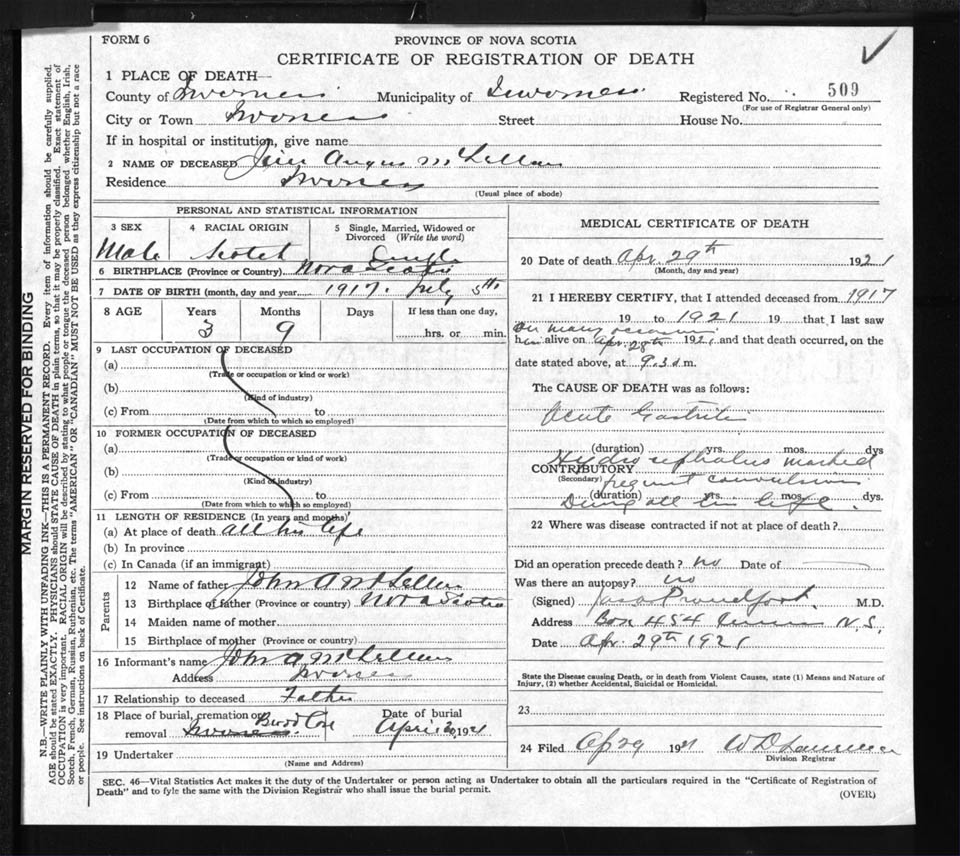 FORM 6
PROVINCE OF NOVA SCOTIA
CERTIFICATE OF REGISTRATION OF DEATH
1 PLACE OF DEATH—
County of Inverness Municipality of Inverness Registered No. 509
(For use of Registrar General only)
City or Town Inverness Street House No.
If in hospital or institution, give name
2 NAME OF DECEASED Angus McLellan
Residence Inverness
(Usual place of abode)
PERSONAL AND STATISTICAL INFORMATION
3 SEX 4 RACIAL ORIGIN 5 Single, Married, Widowed or Divorced (Write the word)
Male Scotch Single
6 BIRTHPLACE (Province or Country) Nova Scotia
7 DATE OF BIRTH (month, day and year 1917. July 5th
8 AGE Years Months Days If less than one day,
3 9 hrs. or min.
9 LAST OCCUPATION OF DECEASED
(a)
(Trade or occupation or kind or work)
(b)
(Kind of industry)
(c) From to
(Date from which to which so employed)
10 FORMER OCCUPATION OF DECEASED
(a)
(Trade or occupation or kind of work)
(b)
(Kind of industry)
(c) From to
(Date from which to which so employed)
11 LENGTH OF RESIDENCE (In years and months)
(a) At place of death all his life
(b) In province
(c) In Canada (if an immigrant)
Parents
12 Name of father John A McLellan
13 Birthplace of father (Province or country) Nova Scotia
14 Maiden name of mother
15 Birthplace of mother (Province or country)
16 Informant's name John A McLellan
Address Inverness
17 Relationship to deceased Father
18 Place of burial, cremation or removal Inverness. Broad Cove Date of burial April 30, 1921
19 Undertaker
(Name and Address)
MEDICAL CERTIFICATE OF DEATH
20 Date of death Apr. 29th 1921
(Month, day and year)
21 I HEREBY CERTIFY, that I attended deceased from 1917
19 to 1921 19 that I last saw
on many occasions
him alive on Apr. 28th 1921 and that death occurred, on the
date stated above, at 9.3 a m.
The CAUSE OF DEATH was as follows:
Acute Gastritis
(duration) yrs. mos. dys
Hydrocephalus marked
CONTRIBUTORY
(Secondary) frequent convulsions
(duration) yrs. mos. dys.
During all his life.
22 Where was disease contracted if not at place of death?
Did an operation precede death? no Date of
Was there an autopsy? no
(Signed) Proudfoot. M.D.
Address Box 454 Inverness N.S.
Date Apr. 29th 1921
State the Disease causing Death, or in death from Violent Causes, state (1) Means and Nature of
Injury, (2) whether Accidental, Suicidal or Homicidal.
23
24 Filed Ap 29 1921 W D Lawrence
Division Registrar
SEC. 46—Vital Statistics Act makes it the duty of the Undertaker or person acting as Undertaker to obtain all the particulars required in the "Certificate of Registration of
Death" and to fyle the same with the Division Registrar who shall issue the burial permit.
(OVER)
MARGIN RESERVED FOR BINDING
N.B.—WRITE PLAINLY WITH UNFADING INK—THIS IS A PERMANENT RECORD. Every item of information should be carefully supplied.
AGE should be stated EXACTLY. PHYSICIANS should STATE CAUSE OF DEATH in plain terms, so that it may be properly classified. Exact statement of
OCCUPATION is very important. RACIAL ORIGIN will be described by stating to what people or tongue the deceased person belonged whether English, Irish,
Scotch, French, German, Russian, Ruthenian, etc. The terms "AMERICAN" OR "CANADIAN" MUST NOT BE USED as they express citizenship but not a race
or people. See instructions on back of Certificate.